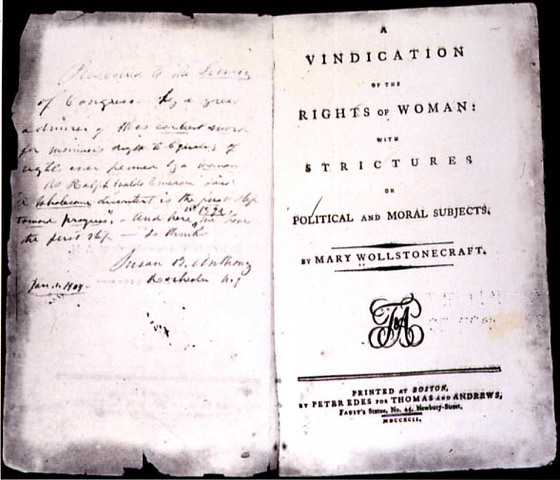 Presented to the Library
of Congress by a great
admirer of this earliest work
for woman's right to Equality of
rights ever penned by a woman
As Ralph Waldo Emerson said
"A wholesome discontent is the first step
toward progress." - And here in 1792 we have
the first step - so thinks
Susan B. Anthony
Rochester N.Y
Jan. 1. 1904.
A
VINDICATION
OF THE
RIGHTS OF WOMAN:
WITH
STRICTURES
ON
POLITICAL AND MORAL SUBJECTS.
BY MARY WOLLSTONECRAFT.
PRINTED AT BOSTON,
BY PETER EDES FOR THOMAS AND ANDREWS,
FAUST's Statue, No. 45, Newbury-Street,
MDCCXCII.